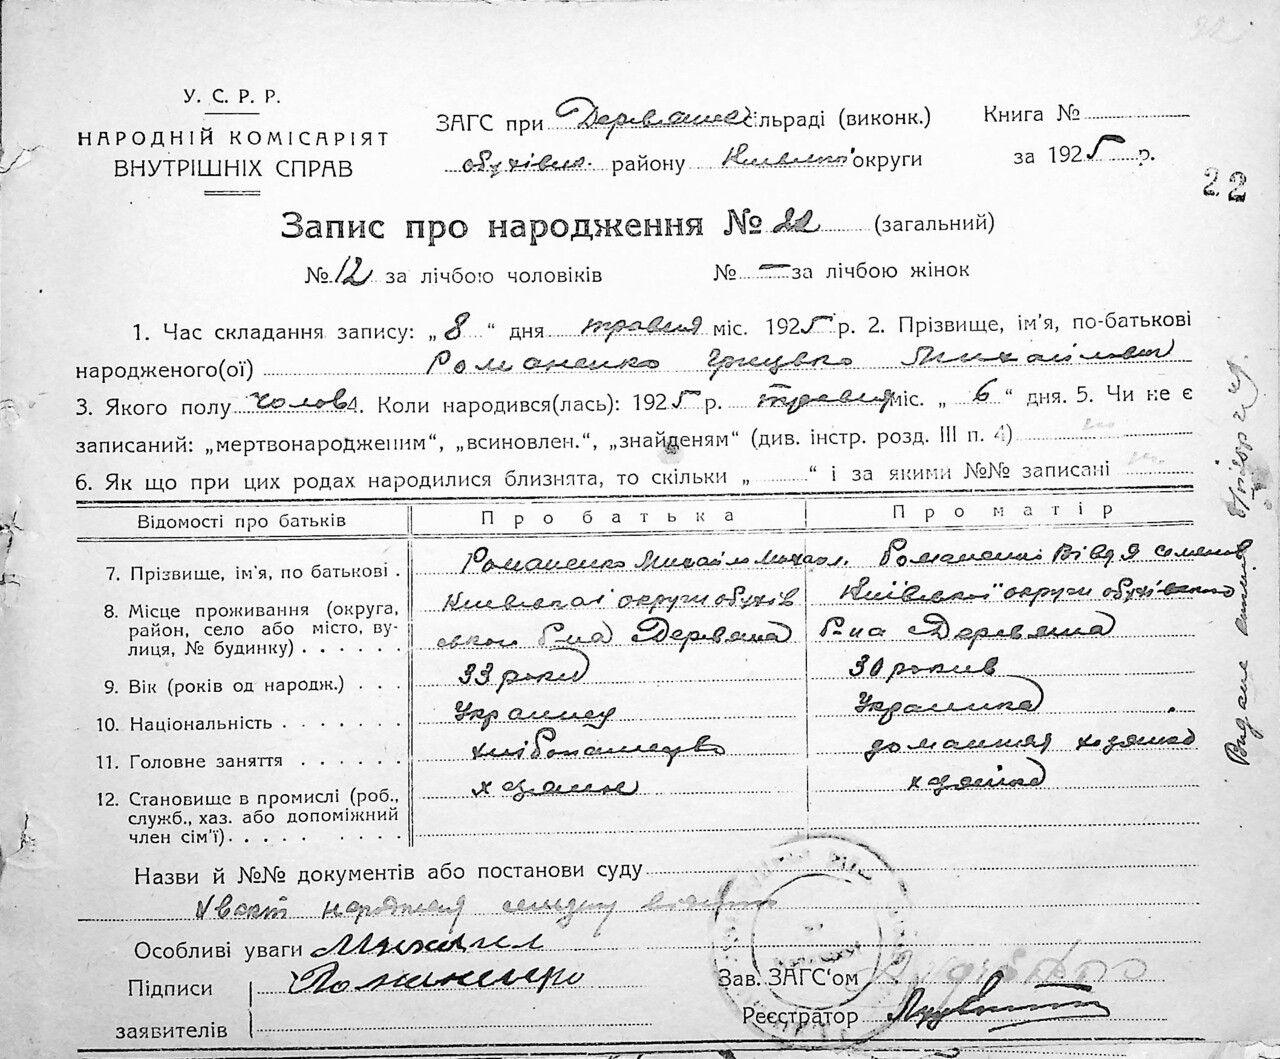 У. С. Р. Р.
НАРОДНІЙ КОМІСАРІЯТ
ВНУТРІШНІХ СПРАВ
ЗАГС при Деревяна сільраді (виконк.)
обухівск. району Київської округи
Книга №
за 1925 р.
22
Запис про народження № 22 (загальний)
№ 12 за лічбою чоловіків № — за лічбою жінок
1. Час складання запису: „ 8 “ дня травня міс. 1925 р. 2. Прізвище, ім'я, по-батькові
народженого(ої) Романенко Грицько Михайлович
3. Якого полу чолов. 4. Коли народився(лась): 1925 р. травня міс. „ 6 “ дня. 5. Чи не є
записаний: „мертвонародженим“, „всиновлен.“, „знайденям“ (див. інстр. розд. III п. 4)
6. Як що при цих родах народилися близнята, то скільки „ “ і за якими №№ записані
Відомості про батьків Про батька Про матір
7. Прізвище, ім'я, по батькові . Романенко Михайло Михайл. Романенко Вівдя Семенов
8. Місце проживання (округа, район, село або місто, вулиця, № будинку) . . . . . .
Київської округи обухів
ського р-на Деревяна
Київської округи обухівского
р-на Деревяна
9. Вік (років од народж.) . . . 33 роки 30 років
10. Національність . . . . . . . Українец Українка
11. Головне заняття . . . . . . хліборобство домашняя хозяйка
12. Становище в промислі (роб., служб., хаз. або допоміжний член сім'ї) . . . . . . . . . хазяин хазяйка
Назви й №№ документів або постанови суду
народження
Особливі уваги Михаил
Підписи Романенко
заявителів
Зав. ЗАГС'ом
Реєстратор